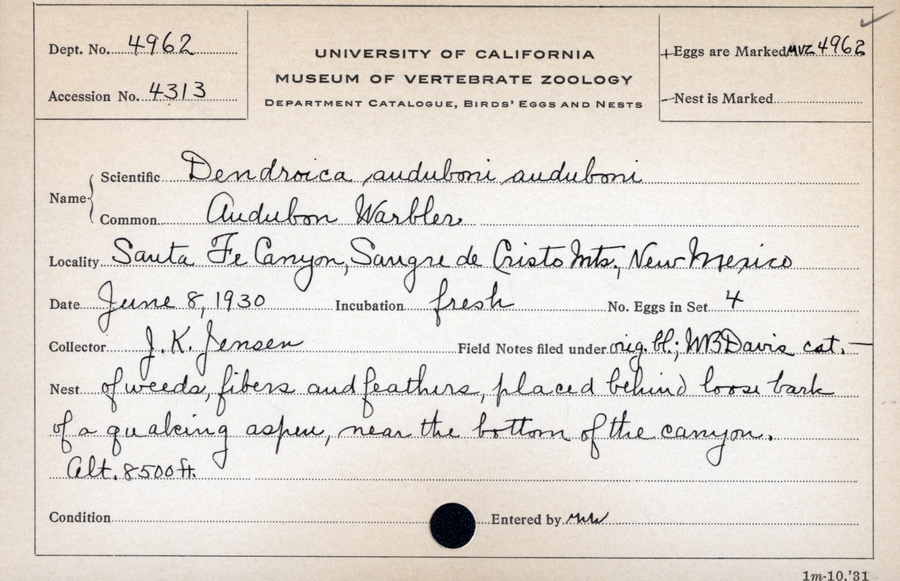 Dept. No. 4962
Accession No. 4313
UNIVERSITY OF CALIFORNIA
MUSEUM OF VERTEBRATE ZOOLOGY
DEPARTMENT CATALOGUE, BIRDS' EGGS AND NESTS
+Eggs are Marked MVZ 4962
—Nest is Marked
Name
Scientific Dendroica auduboni auduboni
Common Audubon Warbler
Locality Santa Fe Canyon, Sangre de Cristo Mts., New Mexico
Date June 8, 1930 Incubation fresh No. Eggs in Set 4
Collector J. K. Jensen Field Notes filed under orig. bl.; WBDavis cat. —
Nest of weeds, fibers and feathers, placed behind loose bark
of a quaking aspen, near the bottom of the canyon.
Alt. 8500 ft.
Condition Entered by
1m-10,'31